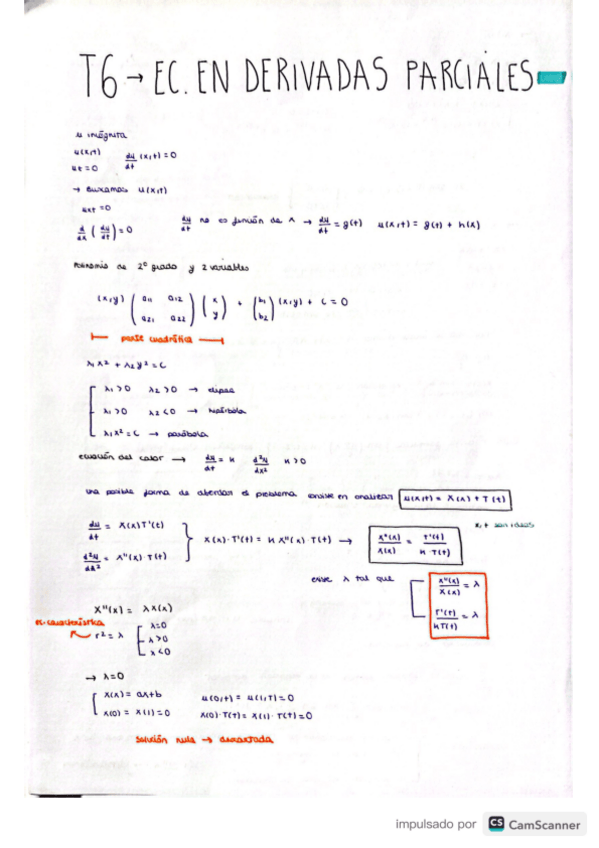 T6 → EC. EN DERIVADAS PARCIALES
u incógnita
u(x,t)
ut = 0
du/dt (x,t) = 0
→ Buscamos u(x,t)
uxt = 0
d/dx (du/dt) = 0
du/dt no es función de x → du/dt = g(t) u(x,t) = g(t) + h(x)
Polinomio de 2º grado y 2 variables
(x,y) (a11 a12 a21 a22) (x y) + (b1 b2) (x,y) + C = 0
parte cuadrática
λ1x² + λ2y² = C
λ1 > 0 λ2 > 0 → elipse
λ1 > 0 λ2 < 0 → hipérbola
λ1x² = C → parábola
ecuación del calor → du/dt = K d²u/dx² K > 0
una posible forma de abordar el problema consiste en analizar u(x,t) = X(x) + T(t)
du/dt = X(x)T'(t)
d²u/dx² = X''(x)·T(t)
X(x)·T'(t) = K X''(x)·T(t) → X''(x)/X(x) = T'(t)/K·T(t)
x,t son ideas
existe λ tal que
X''(x)/X(x) = λ
T'(t)/KT(t) = λ
X''(x) = λX(x)
ec. característica
r² = λ
λ=0
λ>0
λ<0
→ λ=0
X(x) = ax+b u(0,t) = u(1,T) = 0
X(0) = X(1) = 0 X(0)·T(t) = X(1)·T(t) = 0
solución nula → descartada
impulsado por CS CamScanner